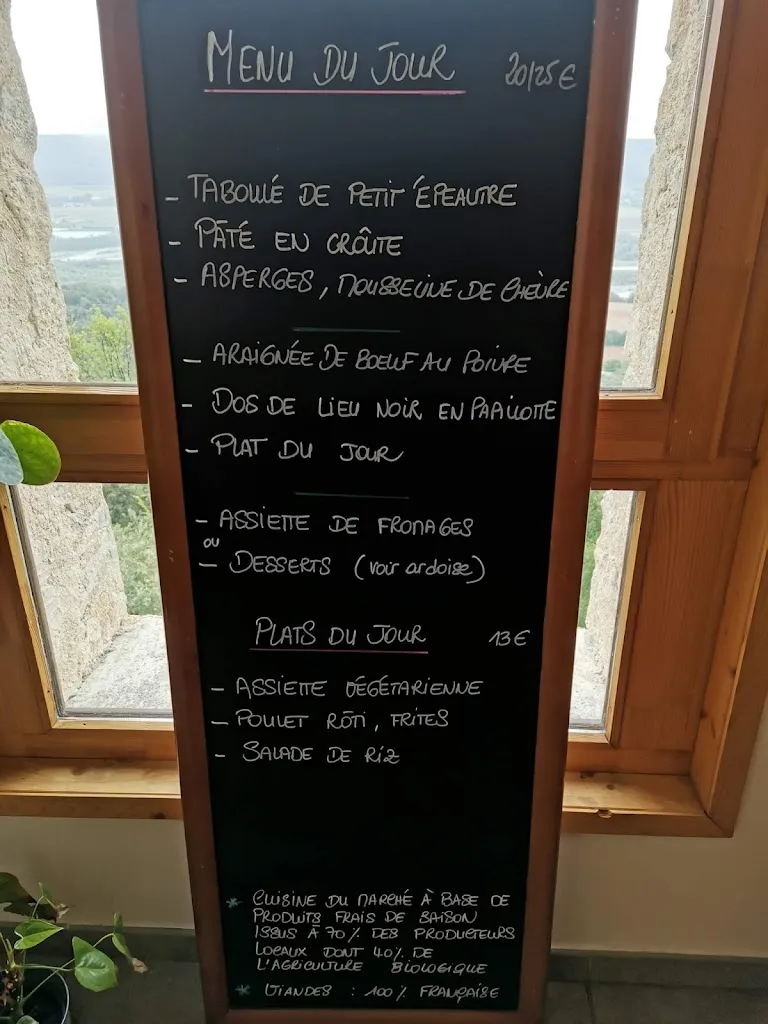 MENU DU JOUR 20/25€
- TABOULÉ DE PETIT ÉPEAUTRE
- PÂTÉ EN CROÛTE
- ASPERGES, MOUSSELINE DE CHÈVRE
- ARAIGNÉE DE BOEUF AU POIVRE
- DOS DE LIEU NOIR EN PAPILLOTTE
- PLAT DU JOUR
- ASSIETTE DE FROMAGES
ou
- DESSERTS (voir ardoise)
PLATS DU JOUR 13€
- ASSIETTE VÉGÉTARIENNE
- POULET RÔTI, FRITES
- SALADE DE RIZ
* CUISINE DU MARCHÉ À BASE DE
PRODUITS FRAIS DE SAISON
ISSUS À 70% DES PRODUCTEURS
LOCAUX DONT 40% DE
L'AGRICULTURE BIOLOGIQUE
* VIANDES : 100% FRANÇAISE